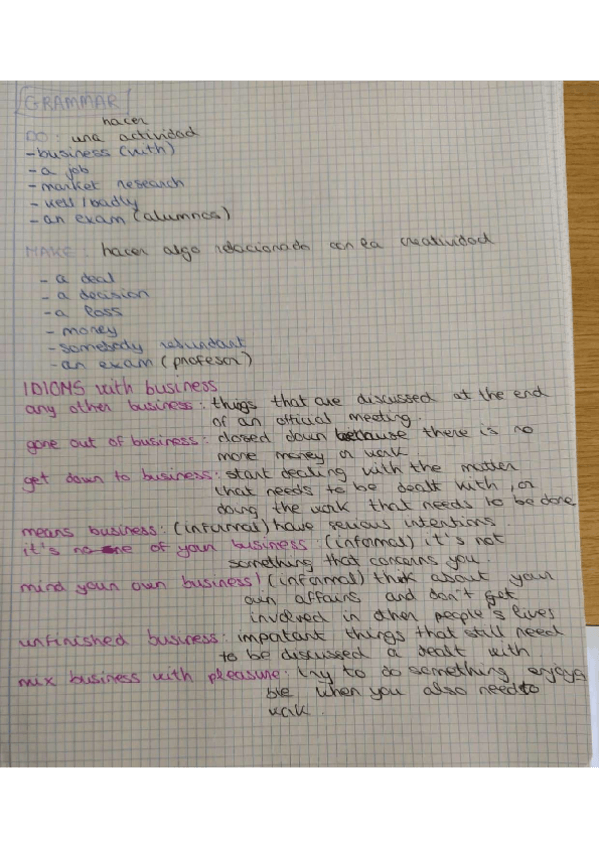 GRAMMAR
hacer
DO: una actividad
- business (with)
- a job
- market research
- well / badly
- an exam (alumnos)
MAKE: hacer algo relacionado con la creatividad
- a deal
- a decision
- a loss
- money
- somebody redundant
- an exam (profesor)
IDIOMS with business
any other business: things that are discussed at the end
of an official meeting.
gone out of business: closed down because there is no
more money or work
get down to business: start dealing with the matter
that needs to be dealt with, or
doing the work that needs to be done
means business: (informal) have serious intentions.
it's no of your business: (informal) it's not
something that concerns you.
mind your own business! (informal) think about your
own affairs and don't get
involved in other people's lives
unfinished business: important things that still need
to be discussed a dealt with
mix business with pleasure: try to do something enjoya
ble when you also need to
work.